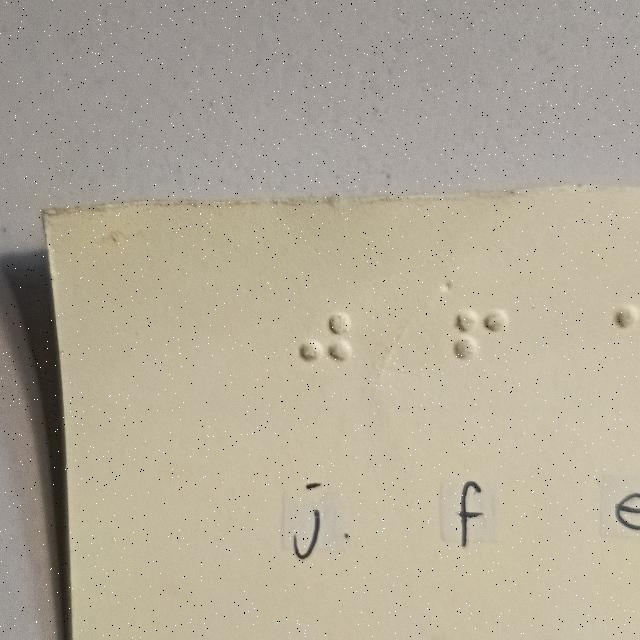 ⠚ ⠋
j f e